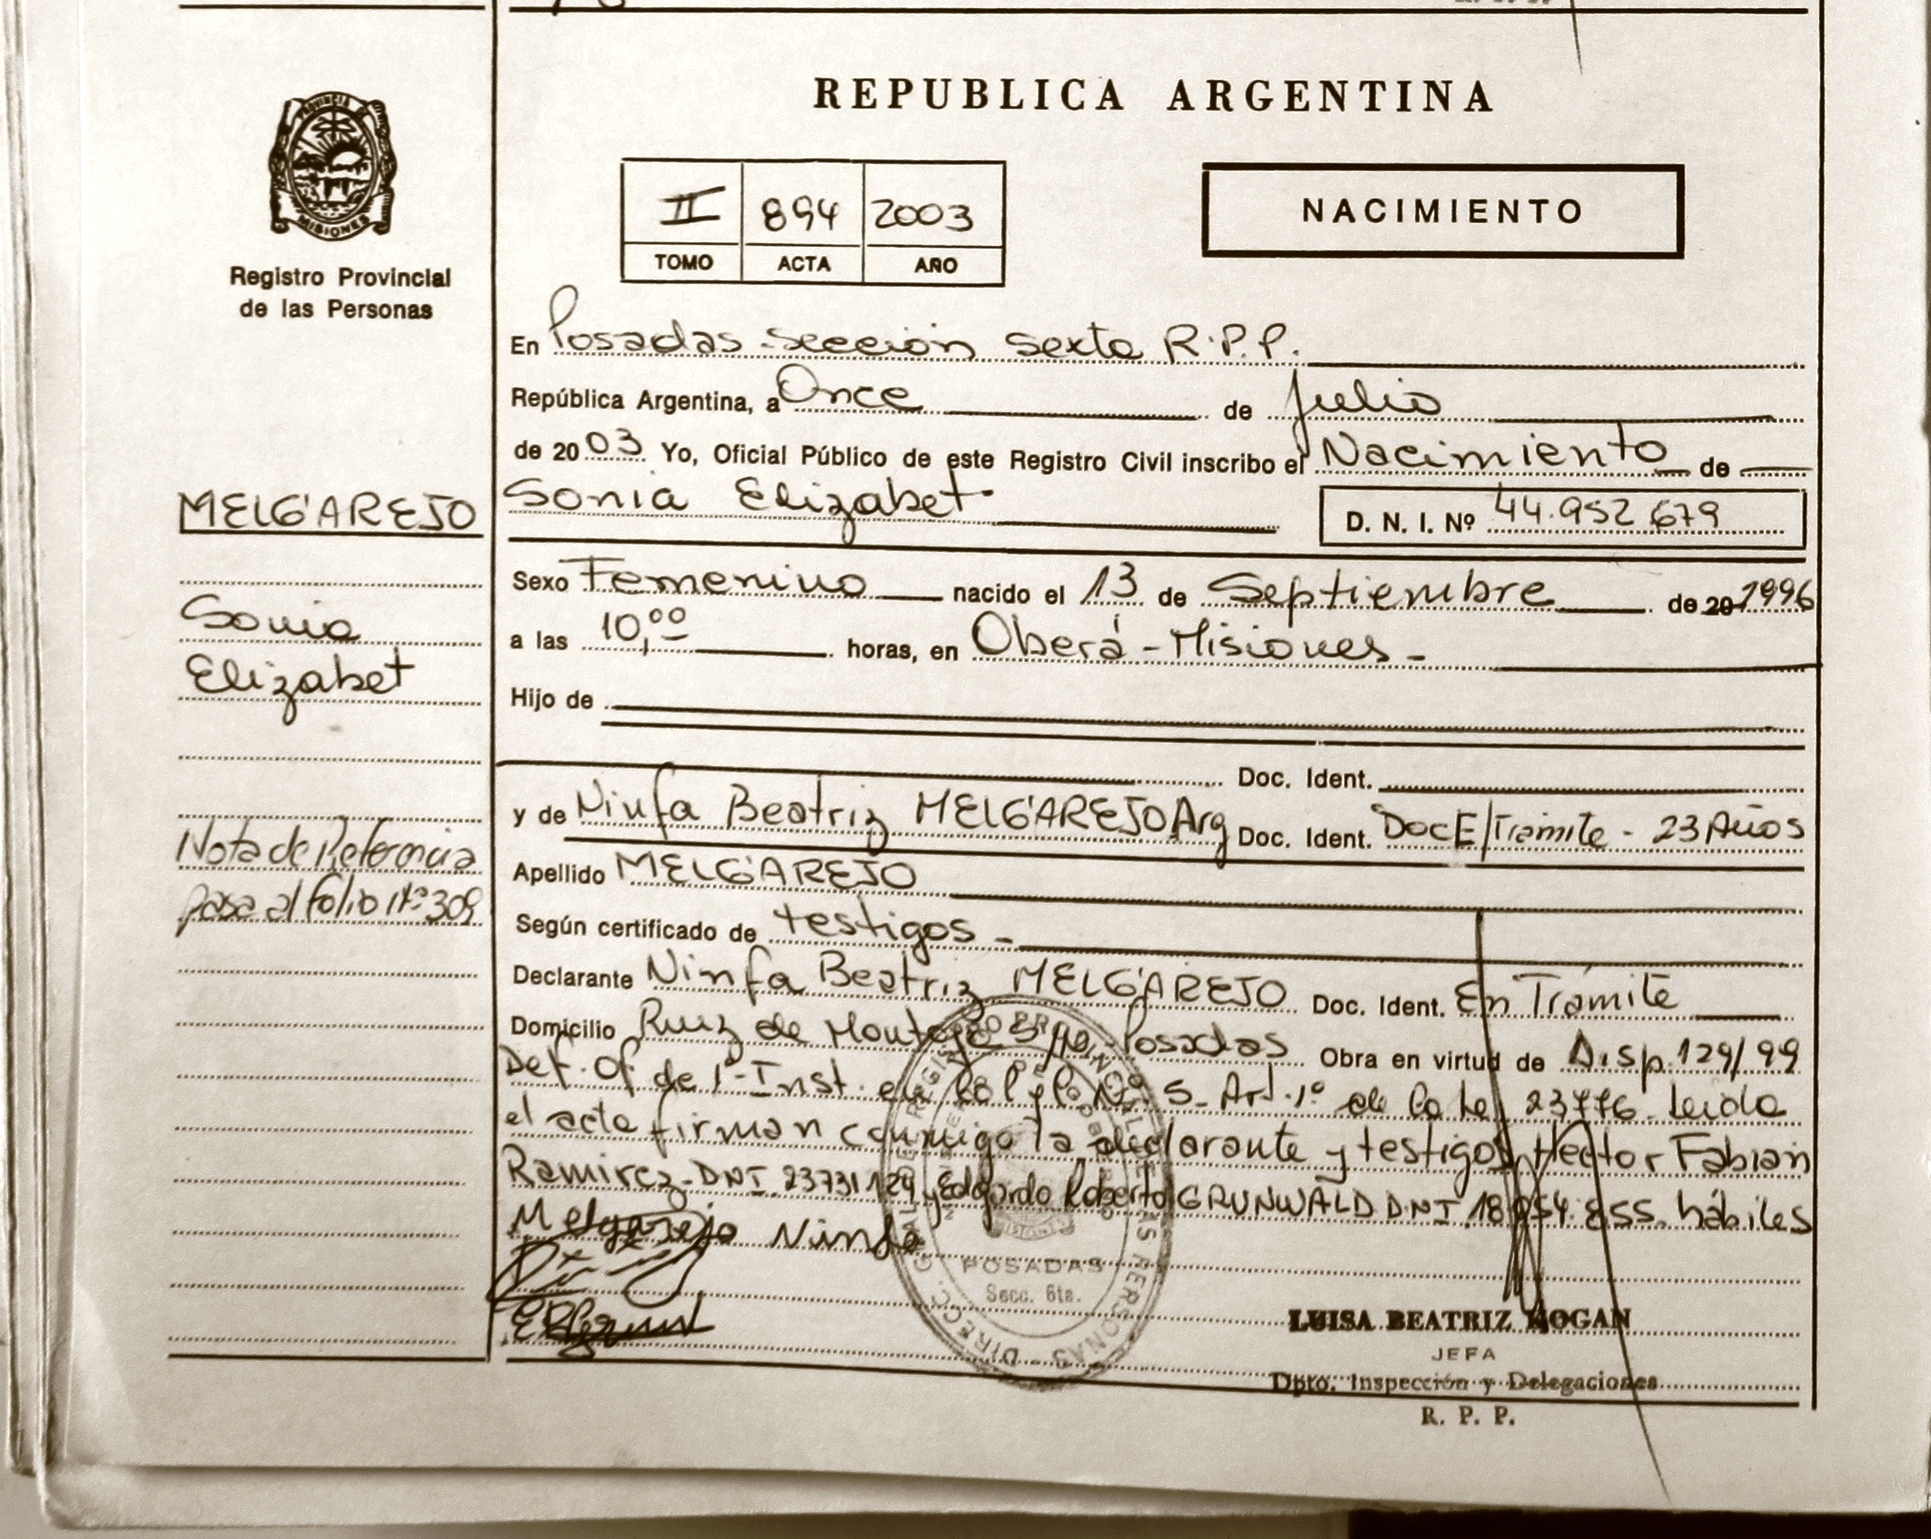 REPUBLICA ARGENTINA
PROVINCIA
MISIONES
Registro Provincial
de las Personas
II 894 2003
TOMO ACTA AÑO
NACIMIENTO
En Posadas-Sección Sexta R.P.P.
República Argentina, a Once de Julio
de 2003 Yo, Oficial Público de este Registro Civil inscribo el Nacimiento de
MELGAREJO
Sonia Elizabet
D. N. I. Nº 44.952.679
Sexo Femenino nacido el 13 de Septiembre de 20 1996
Sonia
Elizabet
a las 10,00 horas, en Oberá-Misiones-
Hijo de
Doc. Ident.
y de Ninfa Beatriz MELGAREJO Arg Doc. Ident. Doc E/Trámite - 23 Años
Nota de Referencia
pasa al folio Nº 309
Apellido MELGAREJO
Según certificado de testigos-
Declarante Ninfa Beatriz MELGAREJO Doc. Ident. En Trámite
Domicilio Ruiz de Montoya S/Nº Posadas Obra en virtud de Disp. 129/99
Def. Of de 1º Inst. en lo C y lo Nº 5- Art. 1º de la Ley 23776 Leida
el acta firman conmigo la declarante y testigos Hector Fabian
Ramirez-DNI 23731129 y Edgardo Roberto GRUNWALD DNI 18.954.855. hábiles
Melgarejo Ninfa
POSADAS
Secc. 6ta.
LUISA BEATRIZ HOGAN
JEFA
Dpto. Inspección y Delegaciones
R. P. P.